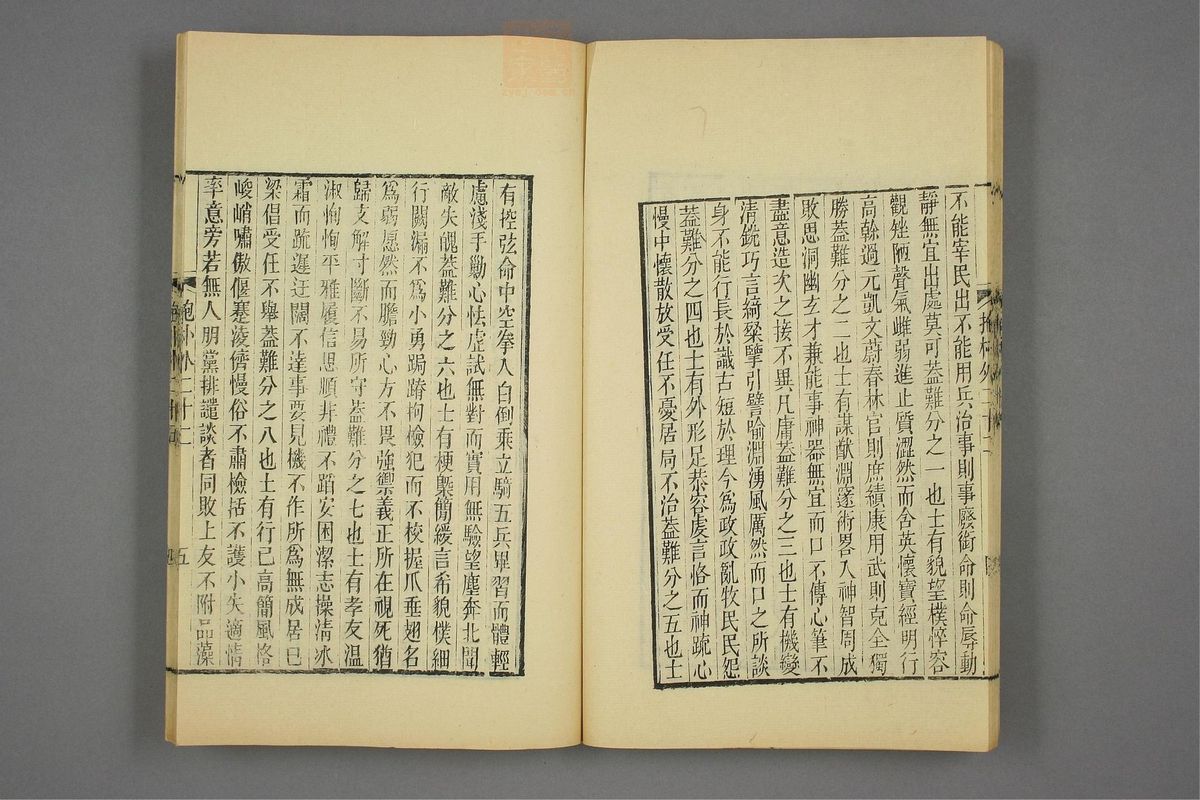 不能宰民出不能用兵治事則事廢銜命則命辱動
靜無宜出處莫可葢難分之一也士有貌望樸悴容
觀矬陋聲氣雌弱進止質澀然而含英懷寶經明行
高幹過元凱文蔚春林官則庶績康用武則克全獨
勝葢難分之二也士有謀猷淵邃術畧入神智周成
敗思洞幽玄才兼能事神器無宜而口不傳心筆不
盡意造次之接不異凡庸葢難分之三也士有機變
清銳巧言綺粲擥引譬喻淵湧風厲然而口之所談
身不能行長於識古短於理今爲政政亂牧民民怨
葢難分之四也士有外形足恭容虔言恪而神疏心
慢中懷散放受任不憂居局不治葢難分之五也士
有控弦命中空拳入白倒乘立騎五兵畢習而體輕
慮淺手勦心怯虛試無對而實用無驗望塵奔北聞
敵失魄葢難分之六也士有梗槩簡緩言希貌樸細
行闕漏不爲小勇跼蹐拘檢犯而不校握爪垂翅名
爲弱愿然而膽勁心方不畏強禦義正所在視死猶
歸支解寸斷不易所守葢難分之七也士有孝友温
淑恂恂平雅履信思順非禮不蹈安困潔志操清冰
霜而疏遲迂闊不達事要見機不作所爲無成居己
梁倡受任不舉葢難分之八也士有行己高簡風格
峻峭嘯傲偃蹇淩儕慢俗不肅檢括不護小失適情
率意旁若無人朋黨排譴談者同敗上友不附品藻
抱朴外二十二
五